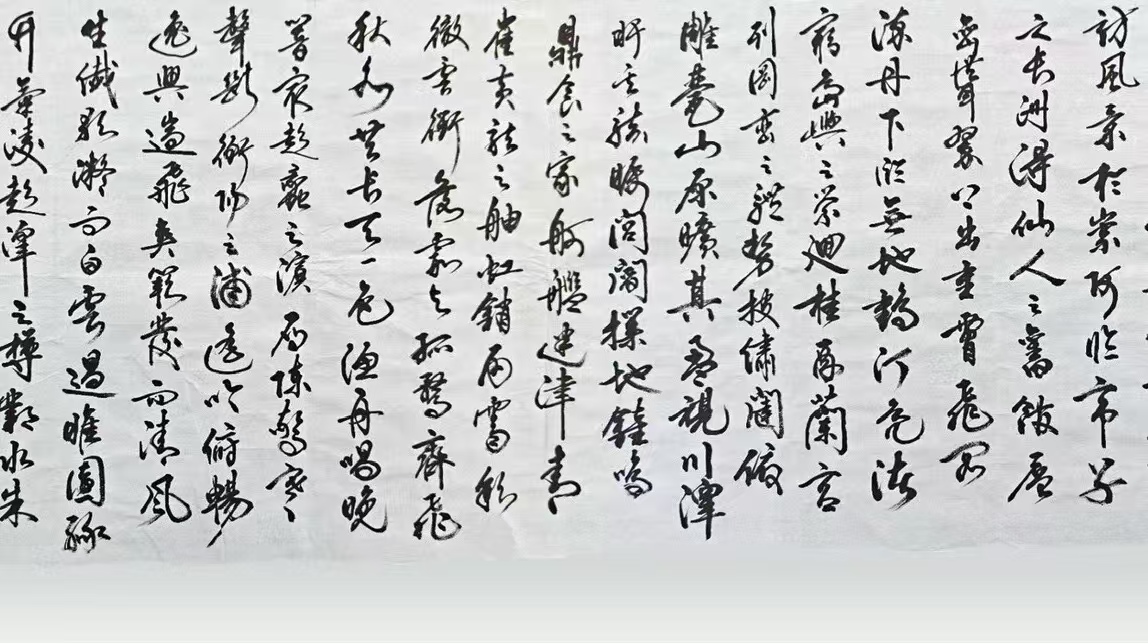 訪風景於崇阿臨帝子
之長洲得仙人之舊館層
巒聳翠上出重霄飛閣
流丹下臨無地鶴汀鳧渚
窮島嶼之縈迴桂殿蘭宮
列岡巒之體勢披繡闥俯
雕甍山原曠其盈視川澤
盱其駭矚閭閻撲地鐘鳴
鼎食之家舸艦迷津青
雀黃龍之舳虹銷雨霽彩
徹雲衢落霞與孤鶩齊飛
秋水共長天一色漁舟唱晚
響窮彭蠡之濱雁陣驚寒
聲斷衡陽之浦遙吟俯暢
逸興遄飛爽籟發而清風
生纖歌凝而白雲遏睢園綠
竹氣凌彭澤之樽鄴水朱